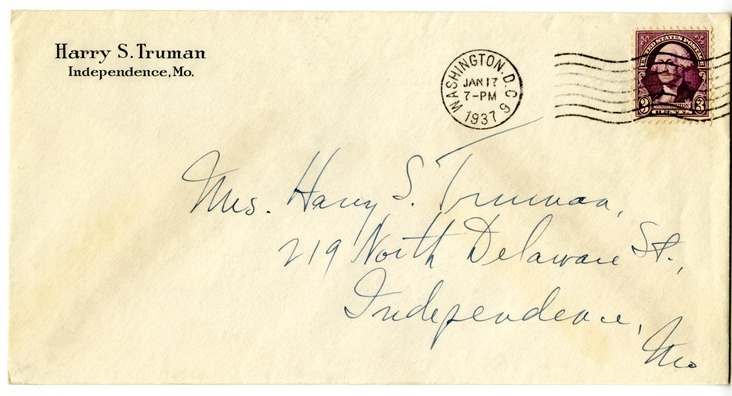 Harry S. Truman
Independence, Mo.
WASHINGTON. D.C. 9
JAN 17
7-PM
1937
UNITED STATES POSTAGE
3 3
Mrs. Harry S. Truman,
219 North Delaware St.,
Independence,
Mo